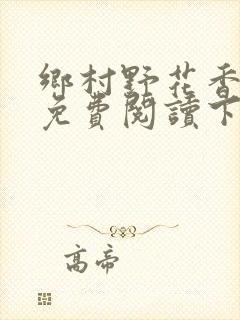 鄉村野花香
免費閱讀下
高帝